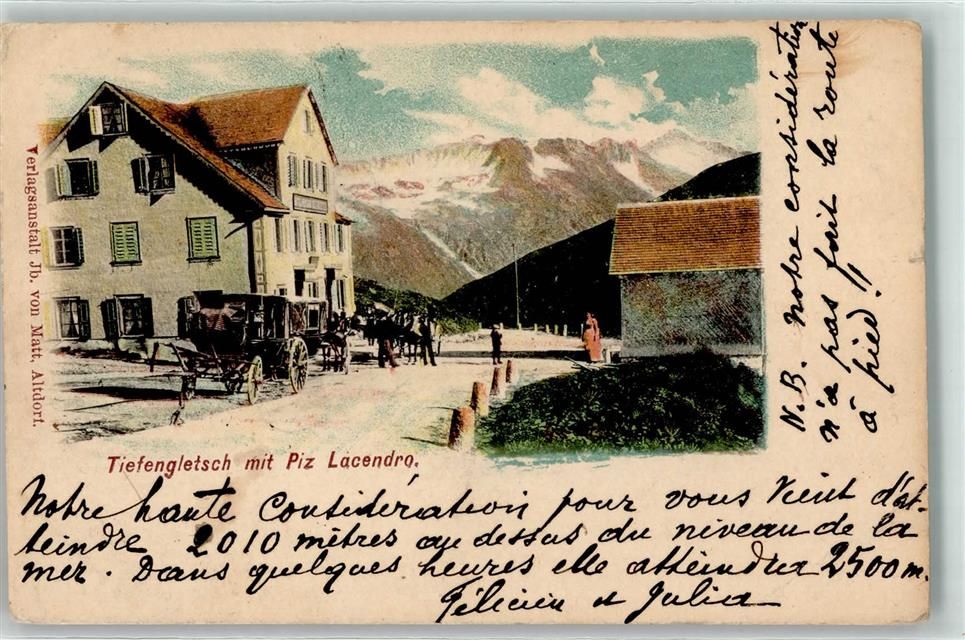 Verlagsanstalt Jb. von Matt, Altdorf.
Tiefengletsch mit Piz Lacendro.
Notre haute considération pour vous vient d'at-
teindre 2010 mètres au dessus du niveau de la
mer. Dans quelques heures elle atteindra 2500 m.
Félicien et Julia
N.B. Notre considération
n'a pas fait la route
à pied!!